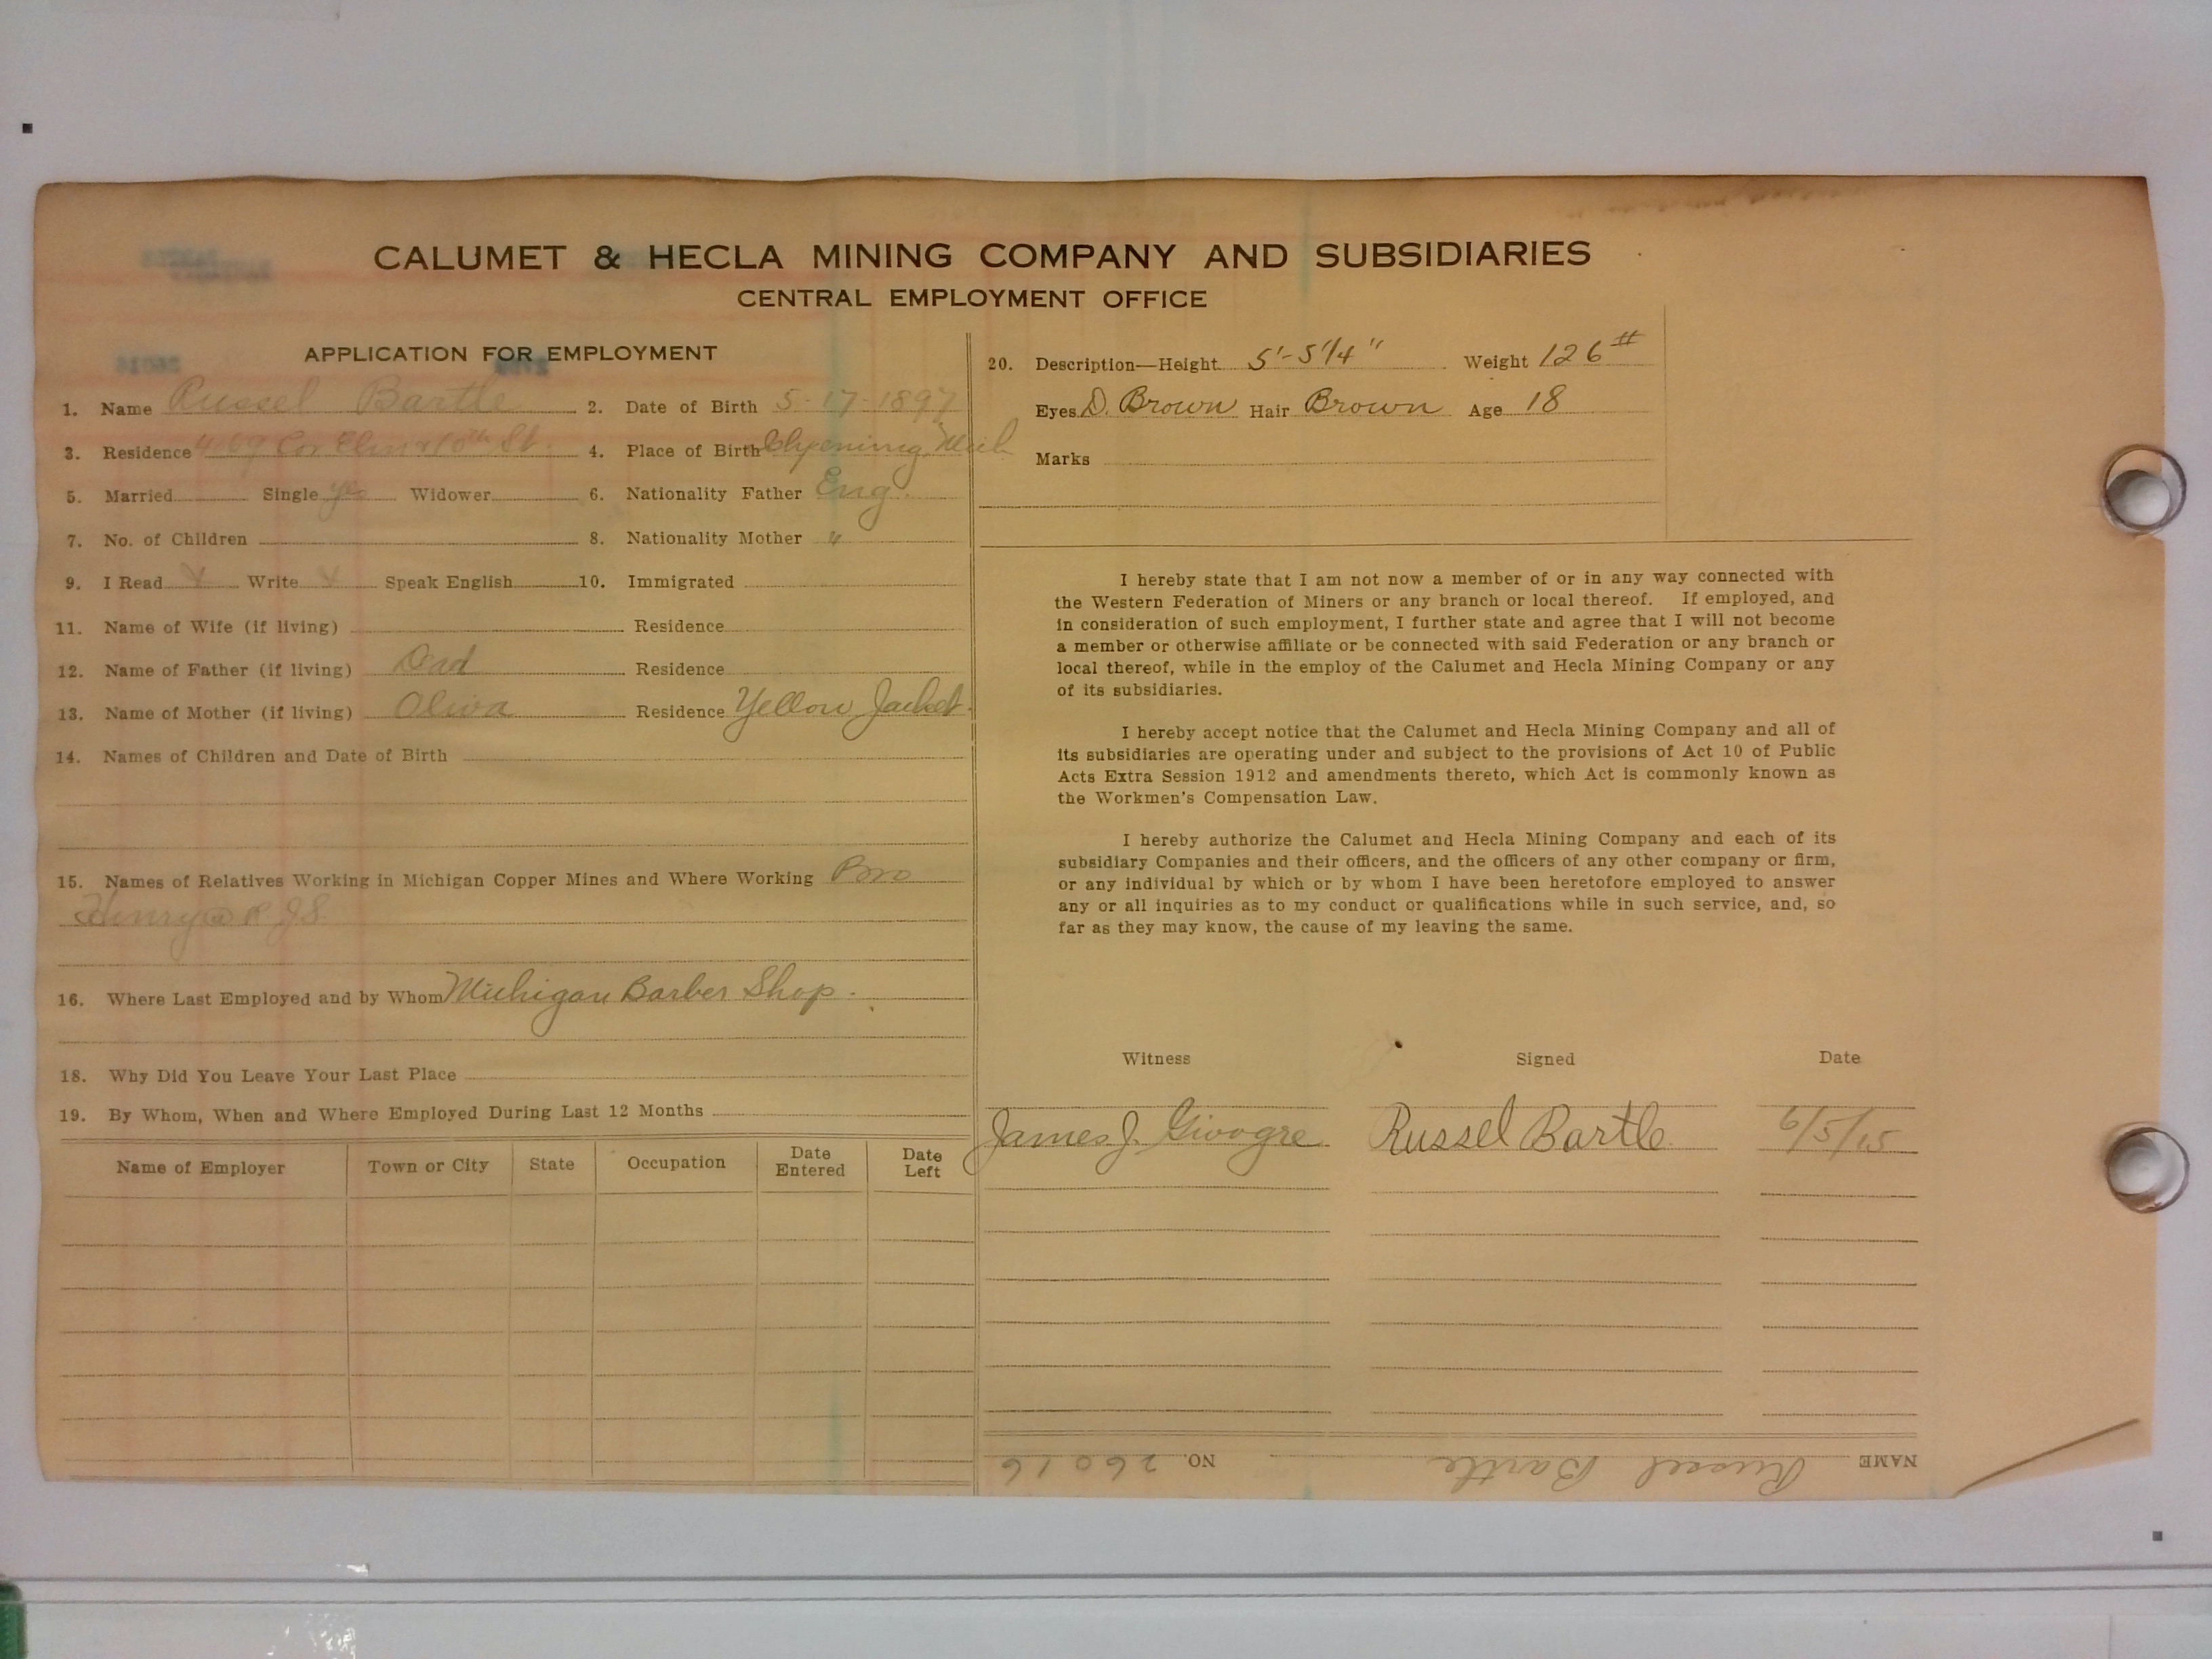 CALUMET & HECLA MINING COMPANY AND SUBSIDIARIES
CENTRAL EMPLOYMENT OFFICE
APPLICATION FOR EMPLOYMENT
1. Name Russel Bartle 2. Date of Birth 5-17-1897
3. Residence 4169 Cor Elm & 10th St. 4. Place of Birth Wyoming, Mich
5. Married Single yes Widower 6. Nationality Father Eng.
7. No. of Children 8. Nationality Mother "
9. I Read X Write X Speak English 10. Immigrated
11. Name of Wife (if living) Residence
12. Name of Father (if living) Dead Residence
13. Name of Mother (if living) Oliva Residence Yellow Jacket.
14. Names of Children and Date of Birth
15. Names of Relatives Working in Michigan Copper Mines and Where Working Bro
Henry
16. Where Last Employed and by Whom Michigan Barber Shop.
18. Why Did You Leave Your Last Place
19. By Whom, When and Where Employed During Last 12 Months
Name of Employer Town or City State Occupation Date Entered Date Left
20. Description—Height 5'-5 1/4" Weight 126#
Eyes D. Brown Hair Brown Age 18
Marks
I hereby state that I am not now a member of or in any way connected with
the Western Federation of Miners or any branch or local thereof. If employed, and
in consideration of such employment, I further state and agree that I will not become
a member or otherwise affiliate or be connected with said Federation or any branch or
local thereof, while in the employ of the Calumet and Hecla Mining Company or any
of its subsidiaries.
I hereby accept notice that the Calumet and Hecla Mining Company and all of
its subsidiaries are operating under and subject to the provisions of Act 10 of Public
Acts Extra Session 1912 and amendments thereto, which Act is commonly known as
the Workmen's Compensation Law.
I hereby authorize the Calumet and Hecla Mining Company and each of its
subsidiary Companies and their officers, and the officers of any other company or firm,
or any individual by which or by whom I have been heretofore employed to answer
any or all inquiries as to my conduct or qualifications while in such service, and, so
far as they may know, the cause of my leaving the same.
Witness Signed Date
James J. Russel Bartle 6/5/15
NAME Russel Bartle NO. 26016